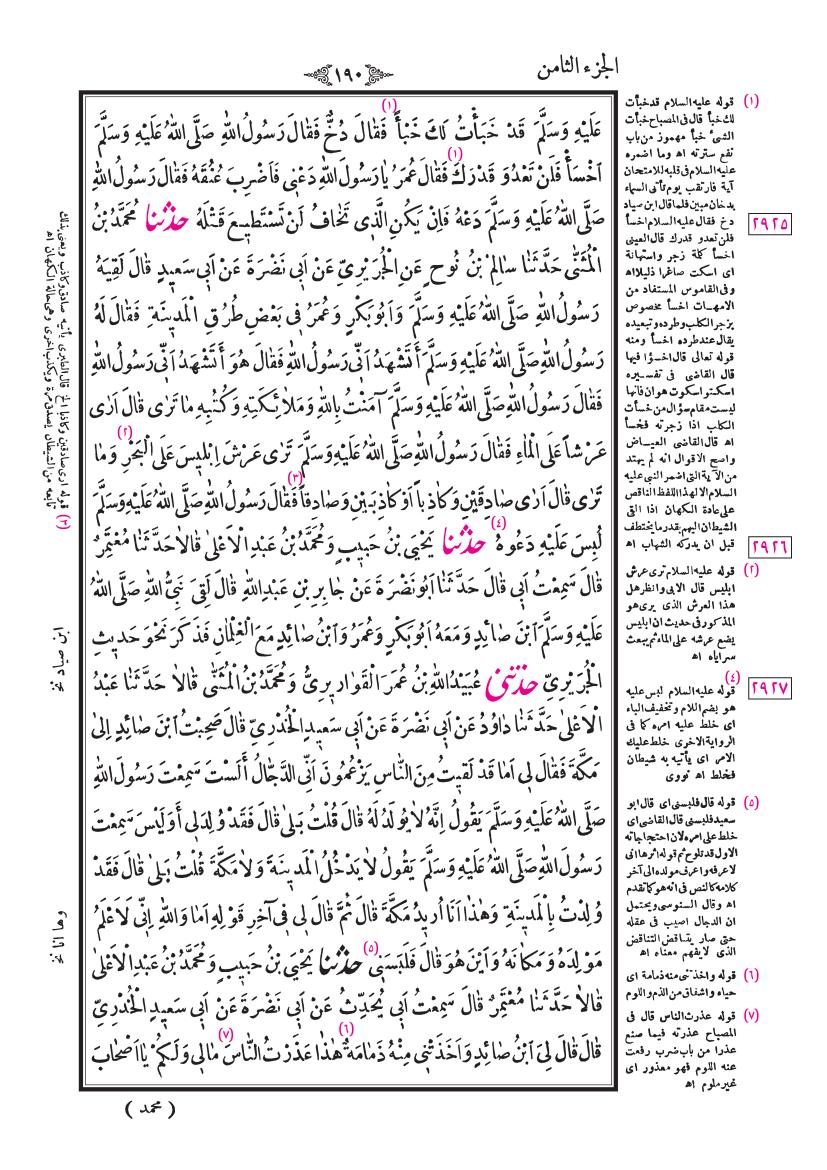 الجزء الثامن
١٩٠
عَلَيْهِ وَسَلَّمَ قَدْ خَبَأْتُ لَكَ خَبْأً (١) فَقَالَ دُخٌّ فَقَالَ رَسُولُ اللّٰهِ صَلَّى اللّٰهُ عَلَيْهِ وَسَلَّمَ
اَخْسَأْ فَلَنْ تَعْدُوَ قَدْرَكَ (١) فَقَالَ عُمَرُ يَا رَسُولَ اللّٰهِ دَعْنِى فَاَضْرِبَ عُنُقَهُ فَقَالَ رَسُولُ اللّٰهِ
صَلَّى اللّٰهُ عَلَيْهِ وَسَلَّمَ دَعْهُ فَاِنْ يَكُنِ الَّذِى تَخَافُ لَنْ تَسْتَطِيعَ قَتْلَهُ حَدَّثَنَا مُحَمَّدُ بْنُ
الْمُثَنَّى حَدَّثَنَا سَالِمُ بْنُ نُوحٍ عَنِ الْجُرَيْرِىِّ عَنْ اَبِى نَضْرَةَ عَنْ اَبِى سَعِيدٍ قَالَ لَقِيَهُ
رَسُولُ اللّٰهِ صَلَّى اللّٰهُ عَلَيْهِ وَسَلَّمَ وَاَبُو بَكْرٍ وَعُمَرُ فِى بَعْضِ طُرُقِ الْمَدِينَةِ فَقَالَ لَهُ
رَسُولُ اللّٰهِ صَلَّى اللّٰهُ عَلَيْهِ وَسَلَّمَ أَتَشْهَدُ اَنِّى رَسُولُ اللّٰهِ فَقَالَ هُوَ أَتَشْهَدُ اَنِّى رَسُولُ اللّٰهِ
فَقَالَ رَسُولُ اللّٰهِ صَلَّى اللّٰهُ عَلَيْهِ وَسَلَّمَ آمَنْتُ بِاللّٰهِ وَمَلَائِكَتِهِ وَكُتُبِهِ مَا تَرٰى قَالَ اَرٰى
عَرْشاً عَلَى الْمَاءِ فَقَالَ رَسُولُ اللّٰهِ صَلَّى اللّٰهُ عَلَيْهِ وَسَلَّمَ تَرٰى (٢) عَرْشَ اِبْلِيسَ عَلَى الْبَحْرِ وَمَا
تَرٰى قَالَ اَرٰى صَادِقَيْنِ وَكَاذِباً اَوْ كَاذِبَيْنِ وَصَادِقاً (٣) فَقَالَ رَسُولُ اللّٰهِ صَلَّى اللّٰهُ عَلَيْهِ وَسَلَّمَ
لُبِسَ عَلَيْهِ دَعُوهُ (٤) حَدَّثَنَا يَحْيَى بْنُ حَبِيبٍ وَمُحَمَّدُ بْنُ عَبْدِ الْاَعْلٰى قَالَا حَدَّثَنَا مُعْتَمِرٌ
قَالَ سَمِعْتُ اَبِى قَالَ حَدَّثَنَا اَبُو نَضْرَةَ عَنْ جَابِرِ بْنِ عَبْدِ اللّٰهِ قَالَ لَقِىَ نَبِىُّ اللّٰهِ صَلَّى اللّٰهُ
عَلَيْهِ وَسَلَّمَ ابْنَ صَائِدٍ وَمَعَهُ اَبُو بَكْرٍ وَعُمَرُ وَابْنُ صَائِدٍ مَعَ الْغِلْمَانِ فَذَكَرَ نَحْوَ حَدِيثِ
الْجُرَيْرِىِّ حَدَّثَنِى عُبَيْدُ اللّٰهِ بْنُ عُمَرَ الْقَوَارِيرِىُّ وَمُحَمَّدُ بْنُ الْمُثَنَّى قَالَا حَدَّثَنَا عَبْدُ
الْاَعْلٰى حَدَّثَنَا دَاوُدُ عَنْ اَبِى نَضْرَةَ عَنْ اَبِى سَعِيدٍ الْخُدْرِىِّ قَالَ صَحِبْتُ ابْنَ صَائِدٍ اِلٰى
مَكَّةَ فَقَالَ لِى اَمَا قَدْ لَقِيتُ مِنَ النَّاسِ يَزْعُمُونَ اَنِّى الدَّجَّالُ أَلَسْتَ سَمِعْتَ رَسُولَ اللّٰهِ
صَلَّى اللّٰهُ عَلَيْهِ وَسَلَّمَ يَقُولُ اِنَّهُ لَا يُولَدُ لَهُ قَالَ قُلْتُ بَلٰى قَالَ فَقَدْ وُلِدَ لِى أَوَلَيْسَ سَمِعْتَ
رَسُولَ اللّٰهِ صَلَّى اللّٰهُ عَلَيْهِ وَسَلَّمَ يَقُولُ لَا يَدْخُلُ الْمَدِينَةَ وَلَا مَكَّةَ قُلْتُ بَلٰى قَالَ فَقَدْ
وُلِدْتُ بِالْمَدِينَةِ وَهٰذَا اَنَا اُرِيدُ مَكَّةَ قَالَ ثُمَّ قَالَ لِى فِى آخِرِ قَوْلِهِ اَمَا وَاللّٰهِ اِنِّى لَاَعْلَمُ
مَوْلِدَهُ وَمَكَانَهُ وَاَيْنَ هُوَ قَالَ فَلَبَسَنِى (٥) حَدَّثَنَا يَحْيَى بْنُ حَبِيبٍ وَمُحَمَّدُ بْنُ عَبْدِ الْاَعْلٰى
قَالَا حَدَّثَنَا مُعْتَمِرٌ قَالَ سَمِعْتُ اَبِى يُحَدِّثُ عَنْ اَبِى نَضْرَةَ عَنْ اَبِى سَعِيدٍ الْخُدْرِىِّ
قَالَ قَالَ لِىَ ابْنُ صَائِدٍ وَاَخَذَتْنِى مِنْهُ ذَمَامَةٌ (٦) هٰذَا عَذَرْتُ النَّاسَ (٧) مَالِى وَلَكُمْ يَا اَصْحَابَ
( محمد )
(١) قوله عليه السلام قد خبأت
لك خبأ قال فى المصباح خبأت
الشئ خبأ مهموز من باب
نفع سترته اه وما اضمره
عليه السلام فى قلبه للامتحان
آية فارتقب يوم تأتى السماء
بدخان مبين فلما قال ابن صياد
دخ فقال عليه السلام اخسأ
فلن تعدو قدرك قال العينى
اخسأ كلمة زجر واستهانة
اى اسكت صاغرا ذليلا اه
وفى القاموس المستفاد من
الامهات اخسأ مخصوص
بزجر الكلب وطرده وتبعيده
يقال عند طرده اخسأ ومنه
قوله تعالى قال اخسؤا فيها
قال القاضى فى تفسيره
اسكتوا سكوت هوان فانها
ليست مقام سؤال من خسأت
الكلب اذا زجرته فخسأ
اه قال القاضى العياض
واصح الاقوال انه لم يهتد
من الآية التى اضمر النبى عليه
السلام الا لهذا اللفظ الناقص
على عادة الكهان اذا القى
الشيطان اليهم بقدر ما يختطف
قبل ان يدركه الشهاب اه
(٢) قوله عليه السلام ترى عرش
ابليس قال الابى وانظر هل
هذا العرش الذى يرى هو
المذكور فى حديث ان ابليس
يضع عرشه على الماء ثم يبعث
سراياه اه
(٤) قوله عليه السلام لبس عليه
هو بضم اللام وتخفيف الباء
اى خلط عليه امره كما فى
الرواية الاخرى خلط عليك
الامر اى يأتيه به شيطان
فخلط اه نووى
(٥) قوله قال فلبسنى اى قال ابو
سعيد فلبسنى قال القاضى اى
خلط على امره لان احتجاجاته
الاول قد تلوح ثم قوله اثرها انى
لا عرفه واعرف مولده الى آخر
كلامه كالنص فى انه هو كما تقدم
اه وقال السنوسى ويحتمل
ان الدجال اصيب فى عقله
حتى صار يتناقض التناقض
الذى لا يفهم معناه اه
(٦) قوله واخذتنى منه ذمامة اى
حياء واشفاق من الذم واللوم
(٧) قوله عذرت الناس قال فى
المصباح عذرته فيما صنع
عذرا من باب ضرب رفعت
عنه اللوم فهو معذور اى
غير ملوم اه
٢٩٢٥
٢٩٢٦
٢٩٢٧
(٣) قوله ارى صادقين وكاذبا الخ قال الطيبى يأتيه صادق وكاذب ويعنى بذلك
تابعه من الشيطان يصدق مرة ويكذب اخرى وهى حالة الكهان اه